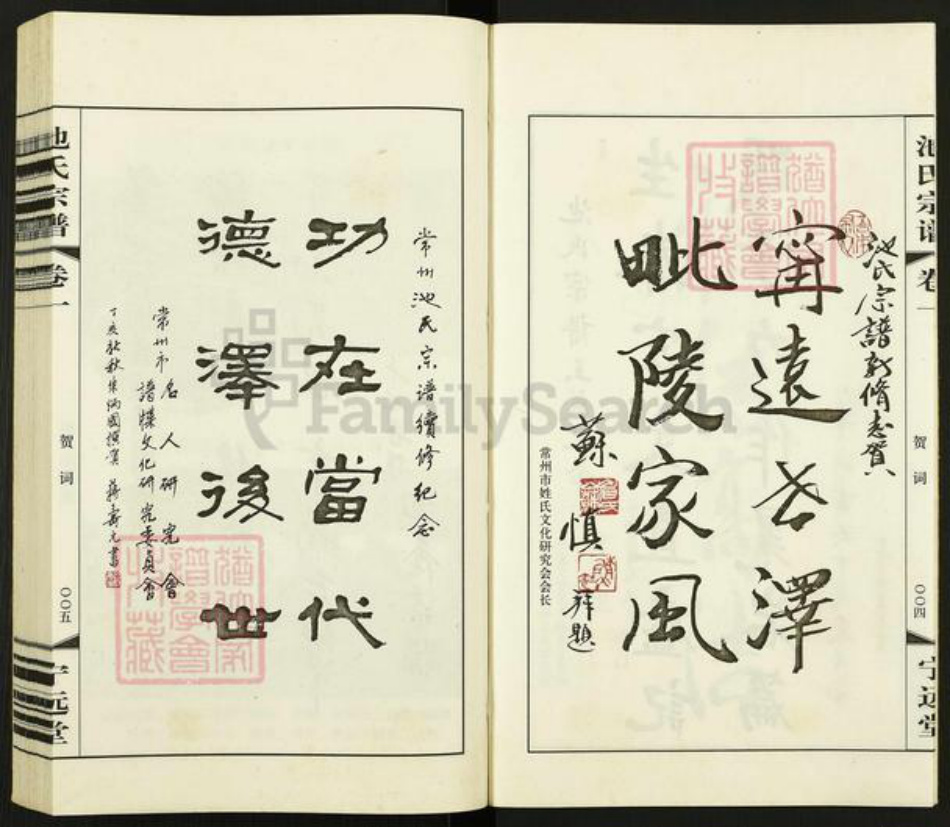 池氏宗谱
卷一
贺词
〇〇四
宁远堂
池氏宗譜新脩志賀
甯遠世澤
毗陵家風
蘇慎
拜題
常州市姓氏文化研究会会长
譜學會
收藏
常州池氏宗谱續修纪念
功在當代
德澤後世
常州市名人研究會
譜牒文化研究委員會
丁亥秋
蔣壽元書
池氏宗谱
卷一
贺词
〇〇五
宁远堂
譜學會
收藏
FamilySearch